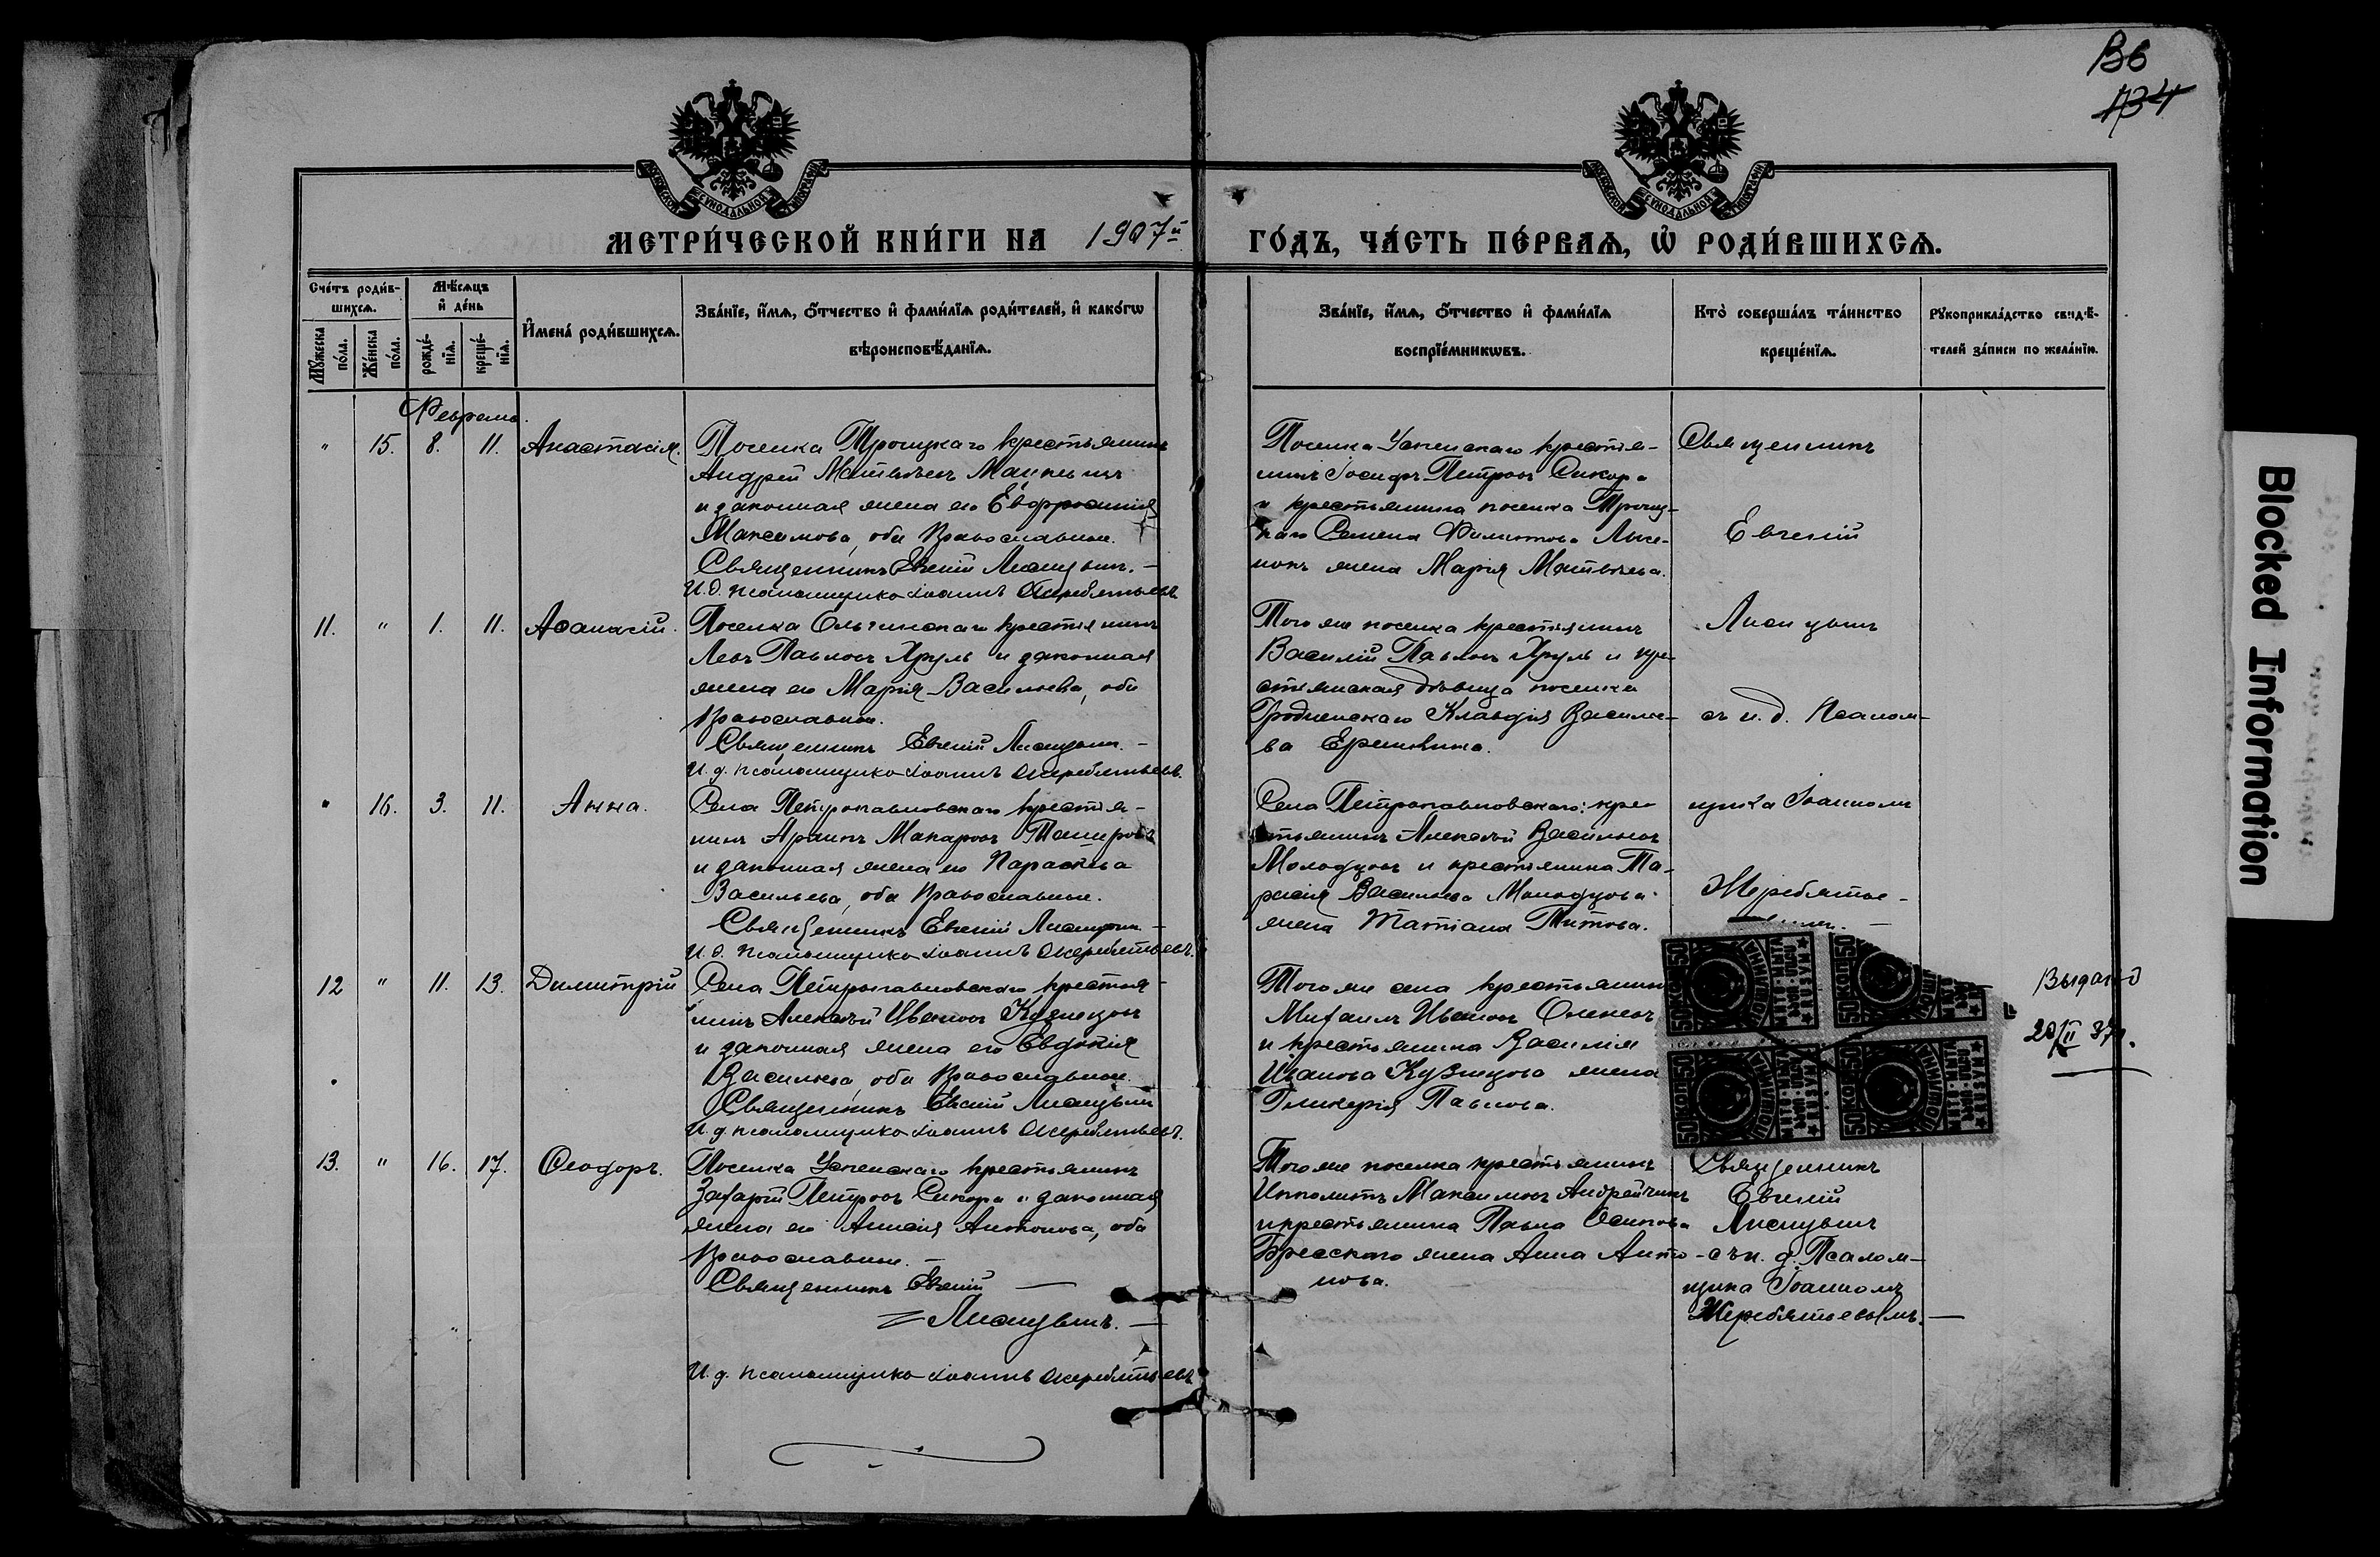 В6
134
МЕТРИ́ЧЕСКОЙ КНИ́ГИ НА 1907й ГО́ДЪ, ЧА́СТЬ ПЕ́РВАѦ, Ѡ҆ РОДИ́ВШИХСѦ.
Сче́тъ роди́в-
шихсѧ.
Мѣ́сѧцъ
и҆ де́нь
Мꙋ́жеска
по́ла.
Же́нска
по́ла.
рожде́-
нїѧ.
креще́-
нїѧ.
И҆мена̀ роди́вшихсѧ.
Зва́нїе, и҆́мѧ, ѻ҆́тчество и҆ фами́лїѧ роди́телей, и҆ како́гѡ
вѣроисповѣ́данїѧ.
Зва́нїе, и҆́мѧ, ѻ҆́тчество и҆ фами́лїѧ
воспрїе́мникѡвъ.
Кто̀ соверша́лъ та́инство
креще́нїѧ.
Рꙋкоприкла́дство свидѣ́-
телей за́писи по жела́нїю.
Февраль.
" 15. 8. 11. Анастасія.
Поселка Троицкаго крестьянинъ
Андрей Матвѣевъ
и законная жена его Евфросинія
Максимова, оба Православные.
Священникъ Евгеній Лисицынъ. –
И.д. псаломщика Іоаннъ Жеребятьевъ
Поселка Успенскаго крестья-
нинъ Іосифъ Петровъ Сикора
и крестьянина поселка Троиц-
каго Семена Филиппова Лысе-
нокъ жена Марія Матвѣева.
Священникъ
Евгеній
11. " 1. 11. Аѳанасій.
Поселка Ольгинскаго крестьянинъ
Левъ Павловъ Хруль и законная
жена его Марія Васильева, оба
Православные.
Священникъ Евгеній Лисицынъ. –
И.д. псаломщика Іоаннъ Жеребятьевъ.
Того же поселка крестьянинъ
Василій Павловъ Хруль и кре-
стьянская дѣвица поселка
Гродненскаго Клавдія Василье-
ва
Лисицынъ
съ и.д. Псалом-
" 16. 3. 11. Анна.
Села Петропавловскаго крестья-
нинъ Макаровъ
и законная жена его Параскева
Васильева, оба Православные.
Священникъ Евгеній Лисицынъ –
И.д. псаломщика Іоаннъ Жеребятьевъ.
Села Петропавловскаго: кре-
стьянинъ Алексѣй Васильевъ
Молодцовъ и крестьянина Та-
расія Васильева Молодцова
жена Татіана Титова.
щика Іоанномъ
Жеребятье-
12 " 11. 13. Димитрій
Села Петропавловскаго крестья-
нинъ Алексѣй Ивановъ Кузнецовъ
и законная жена его Евдокія
Васильева, оба Православные.
Священникъ Евгеній Лисицынъ
И.д. псаломщика Іоаннъ Жеребятьевъ.
Того же села крестьянинъ
Михаилъ Ивановъ
и крестьянина Василія
Иванова Кузнецова жена
Гликерія Павлова.
50КОП50
50КОП50
50КОП50
50КОП50
Выдано
20/II 37г.
13. " 16. 17. Ѳеодоръ.
Поселка Успенскаго крестьянинъ
Захарій Петровъ Сикора и законная
жена его Анисія Антонова, оба
Православные. –
Священникъ Евгеній –
Лисицынъ. –
И.д. псаломщика Іоаннъ Жеребятьевъ
Того же поселка крестьянинъ
Ипполитъ Максимовъ Андрейчикъ
и крестьянина Павла Осипова
жена Анна Анто-
нова.
Священникъ
Евгеній
Лисицынъ
съ и.д. Псалом-
щика Іоанномъ
Жеребятьевымъ. –
Blocked Information